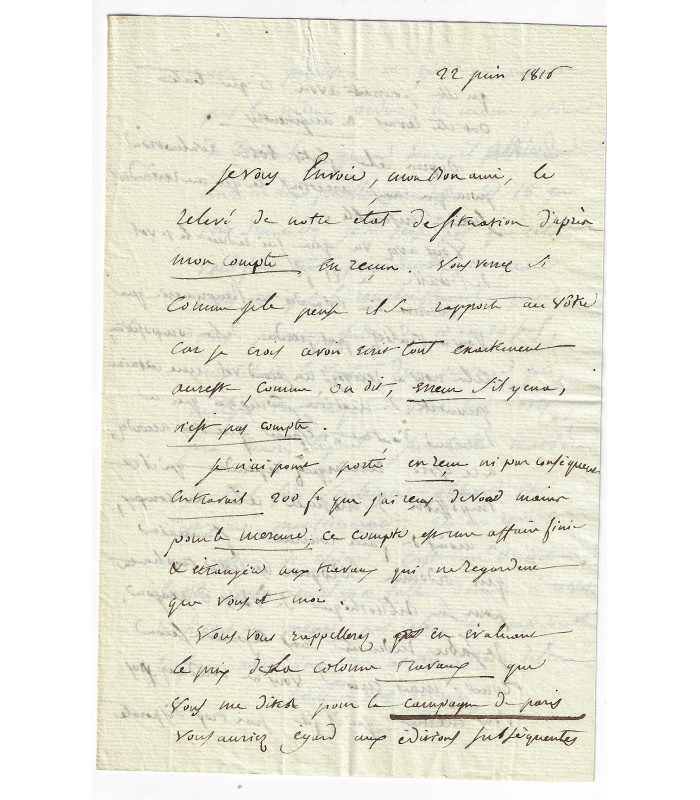 22 juin 1816
Je vous Envoie, mon bon ami, le
relevé de notre etat de situation d'après
mon compte en reçu. Vous verrez si
comme je le pense il se rapporte au vôtre
car je crois avoir ecrit tout exactement
aureste, comme on dit, erreur s'il y en a,
n'est pas compte.
Je n'ai point porté en reçu ni par conséquent
en travail 200 f que j'ai reçus de vos mains
pour le mercure, ce compte est une affaire finie
& étrangère aux travaux qui ne regardent
que vous et moi.
Vous vous rappellerez en évaluant
le prix de la colonne travaux que
vous me dites pour la campagne de paris
vous auriez égard aux éditions subséquentes